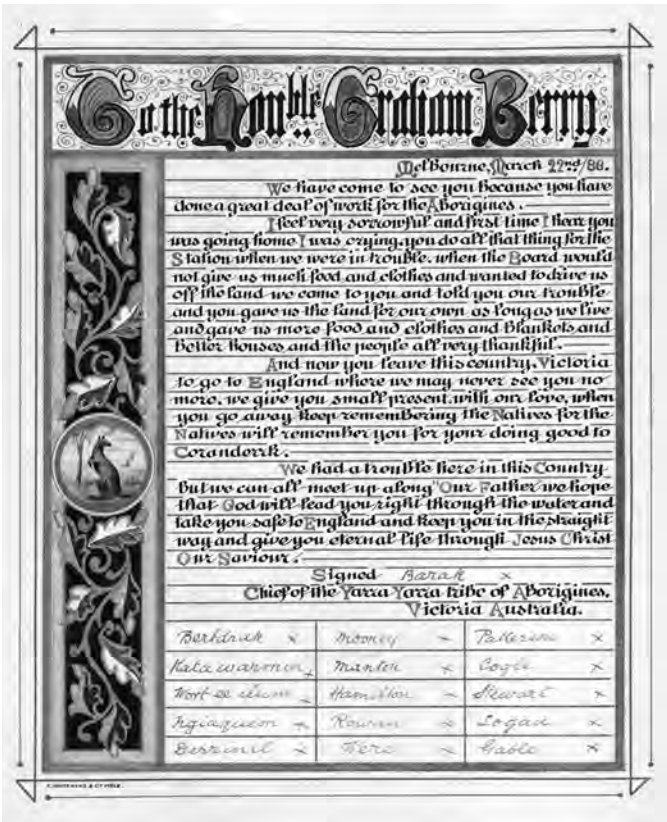 To the Hon'ble Graham Berry.
Melbourne, March 22nd/86.
We have come to see you because you have
done a great deal of work for the Aborigines.
I feel very sorrowful and first time I hear you
was going home I was crying. you do all that thing for the
Station when we were in trouble. when the Board would
not give us much food and clothes and wanted to drive us
off the land we come to you and told you our trouble
and you gave us the land for our own as long as we live
and gave us more food and clothes and Blankets and
better houses and the people all very thankful.
And now you leave this country, Victoria
to go to England where we may never see you no
more, we give you small present with our love, when
you go away keep remembering the Natives for the
Natives will remember you for your doing good to
Coranderrk.
We had a trouble here in this Country
but we can all meet up along "Our Father we hope
that God will lead you right through the water and
take you safe to England and keep you in the straight
way and give you eternal life through Jesus Christ
Our Saviour.
Signed Barak ×
Chief of the Yarra Yarra tribe of Aborigines,
Victoria Australia.
Berhdrak × Mooney × ×
Katawarmin × Manton × Cogie ×
× Hamilton × Stewart ×
Ngiaqueon × Rowan × Logan ×
Derrimil × Fere × Gable ×